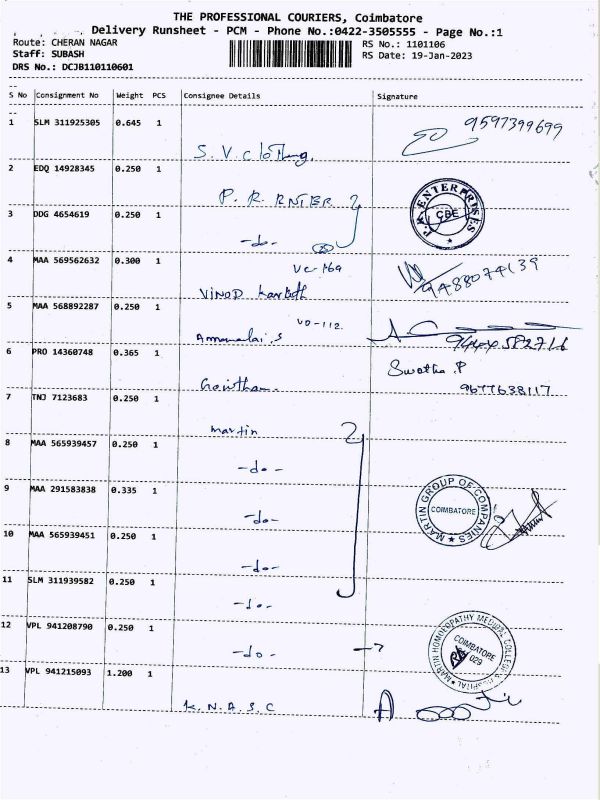 THE PROFESSIONAL COURIERS, Coimbatore
Delivery Runsheet - PCM - Phone No.:0422-3505555 - Page No.:1
Route: CHERAN NAGAR
RS No.: 1101106
Staff: SUBASH
RS Date: 19-Jan-2023
DRS No.: DCJB110110601
S No Consignment No Weight PCS Consignee Details Signature
1 SLM 311925305 0.645 1
9597399699
S. V. clothing.
2 EDQ 14928345 0.250 1
P. R. ENTER
P.R. ENTERPRISES
CBE
3 DDG 4654619 0.250 1
-do-
4 MAA 569562632 0.300 1
VC-169
9488074139
VINOD Karthik
5 MAA 568892287 0.250 1
VO-112
Annamalai.S
6 PRO 14360748 0.365 1
Swatha.P
9677638117
Gowtham.
7 TNJ 7123683 0.250 1
Martin
8 MAA 565939457 0.250 1
-do-
9 MAA 291583838 0.335 1
MARTIN GROUP OF COMPANIES
COIMBATORE
-do-
10 MAA 565939451 0.250 1
-do-
11 SLM 311939582 0.250 1
-do-
12 VPL 941208790 0.250 1
MARTIN HOMOEOPATHY MEDICAL COLLEGE & HOSPITAL
COIMBATORE
029
-do-
13 VPL 941215093 1.200 1
K. N. A. S. C